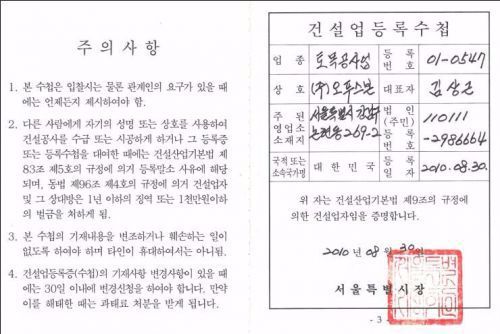 주의사항
1. 본 수첩은 입찰시는 물론 관계인의 요구가 있을 때
에는 언제든지 제시하여야 함.
2. 다른 사람에게 자기의 성명 또는 상호를 사용하여
건설공사를 수급 또는 시공하게 하거나 그 등록증
또는 등록수첩을 대여한 때에는 건설산업기본법 제
83조 제5호의 규정에 의거 등록말소 사유에 해당
되며, 동법 제96조 제4호의 규정에 의거 건설업자
및 그 상대방은 1년 이하의 징역 또는 1천만원이하
의 벌금을 처하게 됨.
3. 본 수첩의 기재내용을 변조하거나 훼손하는 일이
없도록 하여야 하며 타인이 휴대하여서는 아니됨.
4. 건설업등록증(수첩)의 기재사항 변경사항이 있을 때
에는 30일 이내에 변경신청을 하여야 합니다. 만약
이를 해태한 때는 과태료 처분을 받게 됩니다.
건설업등록수첩
업종 토목공사업 등록번호 01-0547
상호 (주)오투스본 대표자 김상근
주된영업소소재지 서울특별시 강남구 논현동 269-2 법인(주민)등록번호 110111-2986664
국적 또는 소속국가명 대한민국 등록일자 2010.08.30.
위 자는 건설산업기본법 제9조의 규정에
의한 건설업자임을 증명합니다.
2010년 08월 30일
서울특별시장
- 3